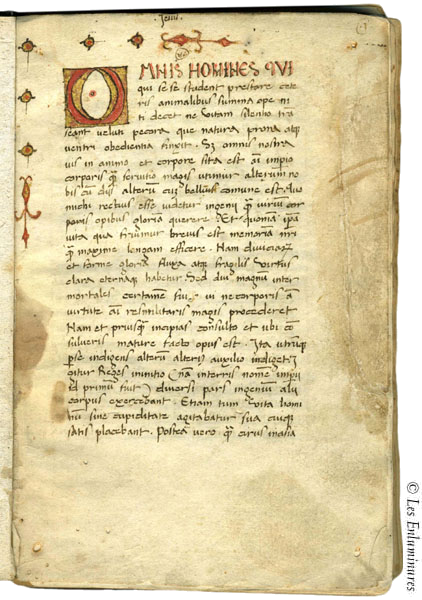 Jesus
OMNIS HOMINES QVI
qui se se student prestare cete
ris animalibus summa ope ni
ti decet ne vitam silentio trā
seant veluti pecora que natura prona atq
ventri obedientia finxit . Sz omnis nostra
vis in animo et corpore sita est aī impio
corporis q̄ servitio magis utimur alterum no
bis cū diis alterum cuz belluis comune est
michi rectius esse videtur ingenii q̄ virium cor
poris opibus gloria querere . Et quoniam ipā
vita qua fruimur brevis est memoria nr̄i
q̄ maxime longam efficere . Nam diviciarz
et forme gloria fluxa atq fragilis virtus
clara eternaq habetur Sed diu magnum inter
mortales certamen fuit vi ne corporis ā
virtute aī res militaris magis procederet
Nam et priusq̄ incipias consulto et ubi cō
sulveris mature facto opus est . Ita utrūq
p se indigens alterum alteri auxilio indiget
igitur Reges initio (nā in terris nomē impii
id primū fuit) diversi pars ingenium alii
corpus exercebant . Etiam tum vita homi
nū sine cupiditate agitabatur sua cuiq
satis placebant . Postea vero q̄ cirus in asia
© Les Enluminures